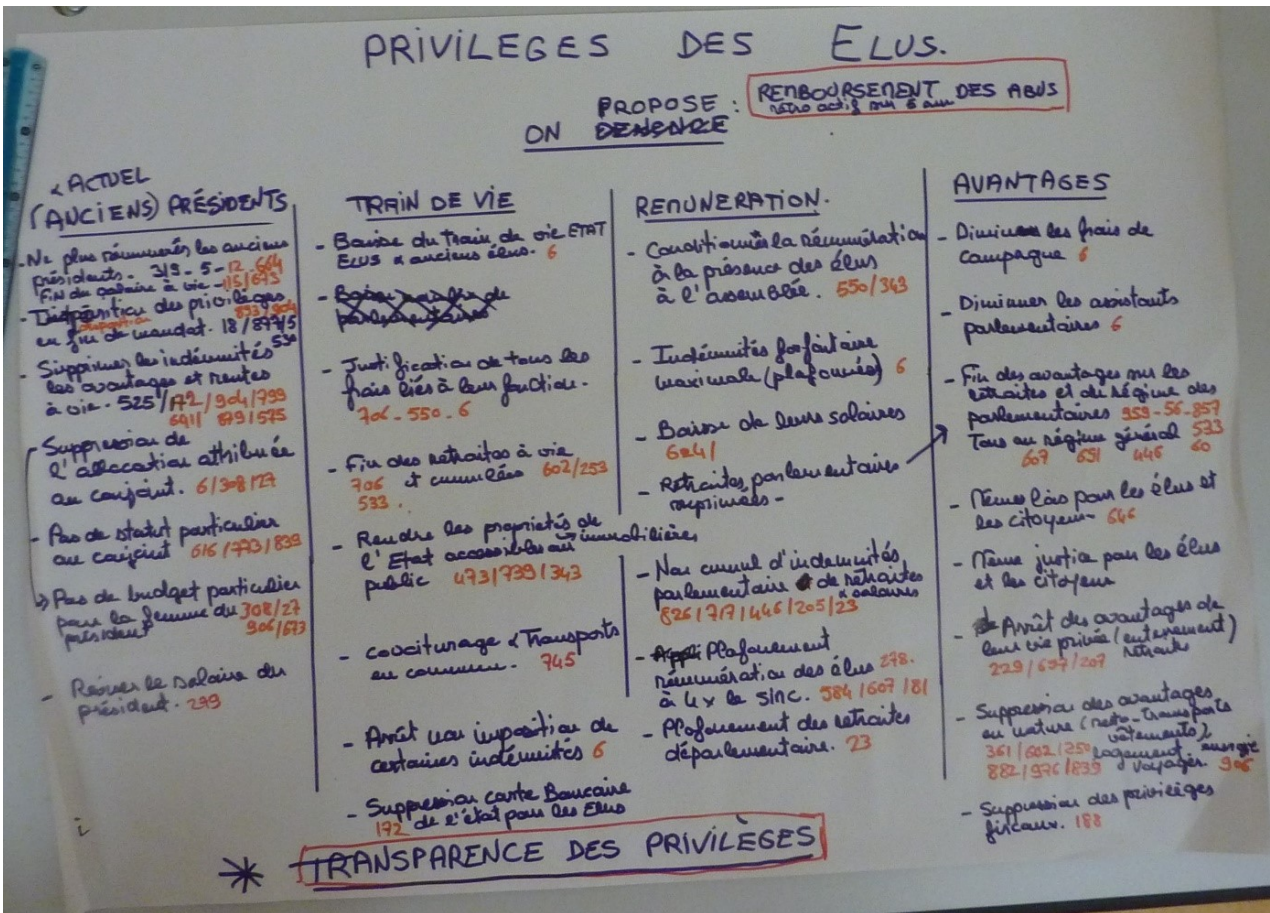 PRIVILEGES DES ELUS.
PROPOSE : REMBOURSEMENT DES ABUS
rétro actif sur 5 ans
ON DENONCE
& ACTUEL
(ANCIENS) PRÉSIDENTS
- Ne plus rémunérés les anciens
présidents - 319 - 5 - 12 - 664
Fin du salaire à vie - 115/673
- Disparition des privilèges 893/904
disparition
en fin de mandat. 18/877/5
- Supprimer les indémnités 530
les avantages et rentes
à vie - 525/172/904/799
691/ 879/575
- Suppression de
l'allocation attribuée
au conjoint. 6/308/27
- Pas de statut particulier
au conjoint 616/773/839
Pas de budget particulier
pour la femme du 308/27
président 906/673
- Réviser le salaire du
président. 299
TRAIN DE VIE
- Baisse du train de vie ETAT
ELUS & anciens élus. 6
- Baisse
parlementaires
- Justification de tous les
frais liés à leur fonction.
706 - 550 - 6
- Fin des retraites à vie
706 et cumulées 602/253
533.
- Rendre les propriétés de
l'Etat accessibles au immobilières
public 473/739/343
- covoiturage & Transports
en commun. 745
- Arrêt non imposition de
certaines indémnités 6
- Suppression carte Bancaire
172 de l'état pour les Elus
REMUNERATION.
- Conditionnés la rémunération
à la présence des élus
à l'assemblée. 550/343
- Indémnités forfaitaire
maximale (plafonnés) 6
- Baisse de leurs salaires
684/
- Retraites parlementaires
supprimées -
- Non cumul d'indemnités
parlementaire de retraites
& salaires
826/717/446/205/23
- Plafonement
rémunération des élus 278.
à 4x le SMIC. 584/607/81
- Plafonement des retraites
départementaire. 23
AVANTAGES
- Diminuer les frais de
campagne 6
- Diminuer les assistants
parlementaires 6
- Fin des avantages sur les
retraites et du régime des
parlementaires 959-56-857
Tous au régime général 533
607 651 446 60
- Mêmes lois pour les élus et
les citoyens - 646
- Même justice pour les élus
et les citoyens
- Arrêt des avantages de
leur vie privée (enterrement)
229/697/207 retraite
- Suppression des avantages
en nature (resto-transports
vêtements)
361/602/250 logement, énergie
882/976/839 voyages. 906
- Suppression des privilèges
fiscaux. 188
* TRANSPARENCE DES PRIVILÈGES